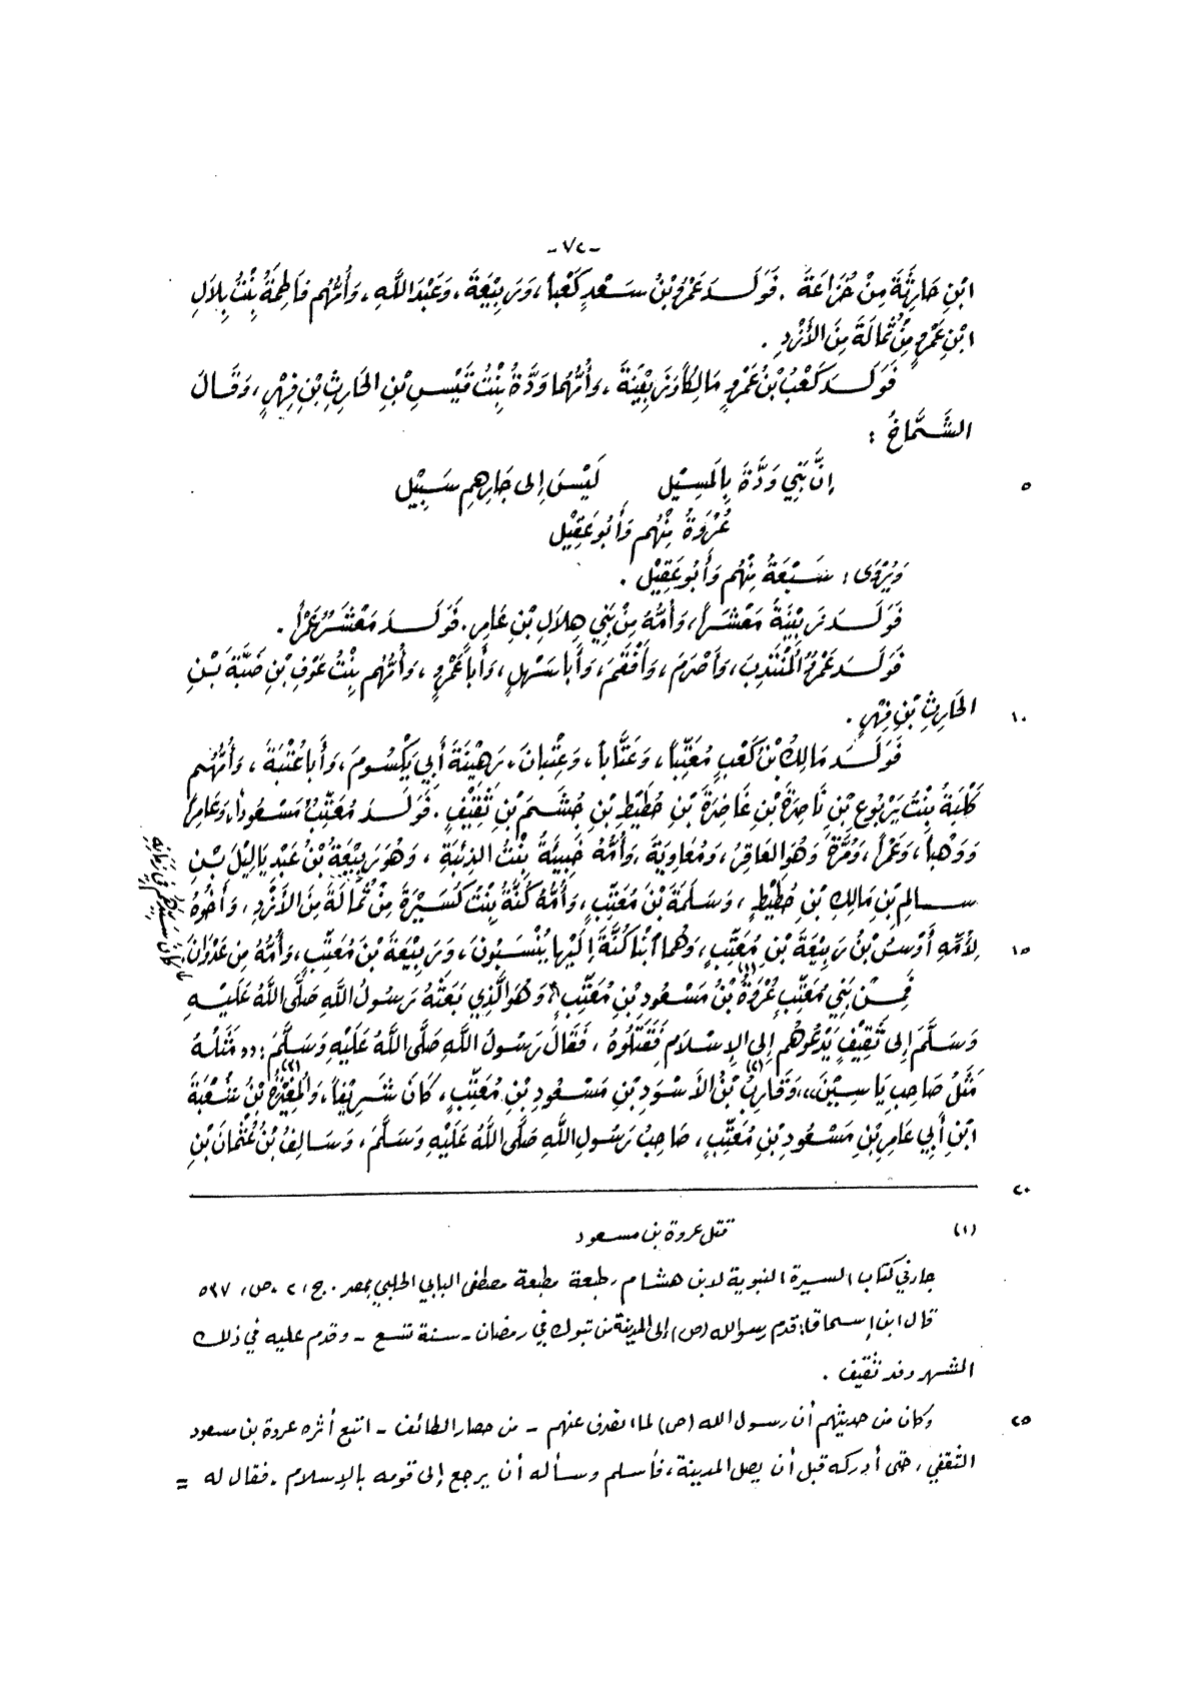 -٧٢-
ابْنِ حَارِثَةَ مِنْ خُزَاعَةَ . فَوَلَـدَ عَمْرُو بْنُ سَـعْدٍ كَعْباً، وَرَبِيْعَةَ، وَعَبْدَ اللَّهِ، وَأُمُّهُم فَاطِمَةُ بِنْتُ بِلَالِ
ابْنِ عَمْرٍو مِنْ ثُمَالَةَ مِنَ الأَزْدِ .
فَوَلَـدَ كَعْبُ بْنُ عَمْرٍو مَالِكاً وَرَبِيْعَةَ، وَأُمُّهُمَا وَدَّةُ بِنْتُ قَيْسِ بْنِ الحَارِثِ بْنِ فِهْرٍ، وَقَالَ
الشَّـمَّاخُ :
إِنَّ بَنِي وَدَّةَ بِالمَسِيْلِ لَيْسَ إِلى جَارِهِمِ سَـبِيْل
٥
عُرْوَةُ مِنْهُم وَأَبُو عَقِيْل
وَيُرْوَى : سَـبْعَةُ مِنْهُم وَأَبُو عَقِيْل .
فَوَلَـدَ رَبِيْعَةُ مَعْشَـراً، وَأُمُّهُ مِنْ بَنِي هِلَالِ بْنِ عَامِرٍ. فَوَلَـدَ مَعْشَـرٌ عَمْراً .
فَوَلَـدَ عَمْرٌو المُنْتَدِبَ، وَأَصْرَمَ، وَأَفْقَمَ، وَأَبَا سَـهْلٍ، وَأَبَا عَمْرٍو، وَأُمُّهُم بِنْتُ عَوْفِ بْنِ ضَبَّةَ بْـنِ
الحَارِثِ بْنِ فِهْرٍ .
١٠
فَوَلَـدَ مَالِكُ بْنُ كَعْبٍ مُعَتِّباً، وَعَتَّاباً، وَعِتْبَانَ، رَهِيْنَةَ أَبِي يَكْسُـومَ، وَأَبَا عُتْبَةَ، وَأُمُّهُـم
كَلْبَةُ بِنْتُ يَرْبُوعِ بْنِ نَاصِرَةَ بْنِ غَاضِرَةَ بْنِ حُطَيْطِ بْنِ جُشَـمَ بْنِ ثَقِيْفٍ. فَوَلَـدَ مُعَتِّبٌ مَسْـعُوداً، وَعَامِراً
وَوَهْباً، وَعَمْراً، وَمُرَّةَ وَهُوَ العَاقِرُ، وَمُعَاوِيَةَ، وَأُمُّهُ خَبِيئَةُ بِنْتُ الذِئْبَةِ، وَهُوَ رَبِيْعَةُ بْنُ عَبْدِ يَالِيْلَ بْـنِ
سـالِمِ بْنِ مَالِكِ بْنِ حُطَيْطٍ، وَسَـلَمَةَ بْنَ مُعَتِّبٍ، وَأُمُّهُ كُنَّةُ بِنْتُ كُسَـيْرَةَ مِنْ ثُمَالَةَ مِنَ الأَزْدِ، وَأَخُوهُ
لِأُمِّهِ أَوْسُ بْنُ رَبِيْعَةَ بْنِ مُعَتِّبٍ، وَهُمَا ابْنَا كُنَّةَ إِلَيْهَا يُنْسَـبُونَ، وَرَبِيْعَةَ بْنَ مُعَتِّبٍ، وَأُمُّهُ مِنْ عَدْوَانَ،
١٥
كَانَ سَـيِّدَهُم فِي زَمَانِهِ
فَمِـنْ بَنِي مُعَتِّبٍ عُرْوَةُ (١) بْنُ مَسْـعُودِ بْنِ مُعَتِّبٍ، وَهُوَ الَّذِي بَعَثَهُ رَسُـولُ اللَّهِ صَلَّى اللَّهُ عَلَيْـهِ
وَسَـلَّمَ إِلى ثَقِيْفٍ يَدْعُوهُم إِلى الإِسْـلَامِ فَقَتَلُوهُ، فَقَالَ رَسُـولُ اللَّهِ صَلَّى اللَّهُ عَلَيْهِ وَسَـلَّمَ : ,,مَثَلُـهُ
مَثَلُ صَاحِبِ يَاسِـيْنَ،، وَقَارِبُ (٢) بْنُ الأَسْـوَدِ بْنِ مَسْـعُودِ بْنِ مُعَتِّبٍ، كَانَ شَـرِيْفاً، وَالمُغِيْرَةُ (٣) بْنُ شُـعْبَةَ
ابْنِ أَبِي عَامِرِ بْنِ مَسْـعُودِ بْنِ مُعَتِّبٍ، صَاحِبُ رَسُـولِ اللَّهِ صَلَّى اللَّهُ عَلَيْهِ وَسَـلَّمَ، وَسَـالِفُ بْنُ عُثْمَانَ بْنِ
٢٠
(١) مقتل عروة بن مسعود
جاء في كتاب السيرة النبوية لابن هشام، طبعة مطبعة مصطفى البابي الحلبي بمصر. ج، ٢، ص، ٥٣٧
قال ابن إسحاق: قدم رسول الله (ص) إلى المدينة من تبوك في رمضان - سنة تسع - وقدم عليه في ذلك
الشهر وفد ثقيف .
وكان من حديثهم أن رسول الله (ص) لما انصرف عنهم - من حصار الطائف - اتبع أثره عروة بن مسعود
٢٥
الثقفي، حتى أدركه قبل أن يصل المدينة، فأسلم وسأله أن يرجع إلى قومه بالإسلام، فقال له =